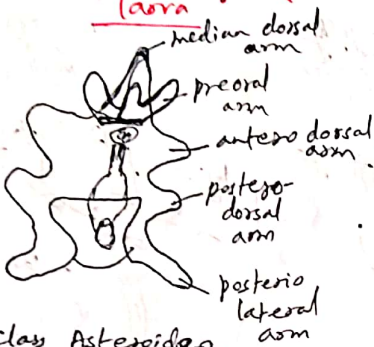 larva
median dorsal
arm
preoral
arm
antero dorsal
arm
postero-
dorsal
arm
posterio
lateral
arm
Class Asteroidea